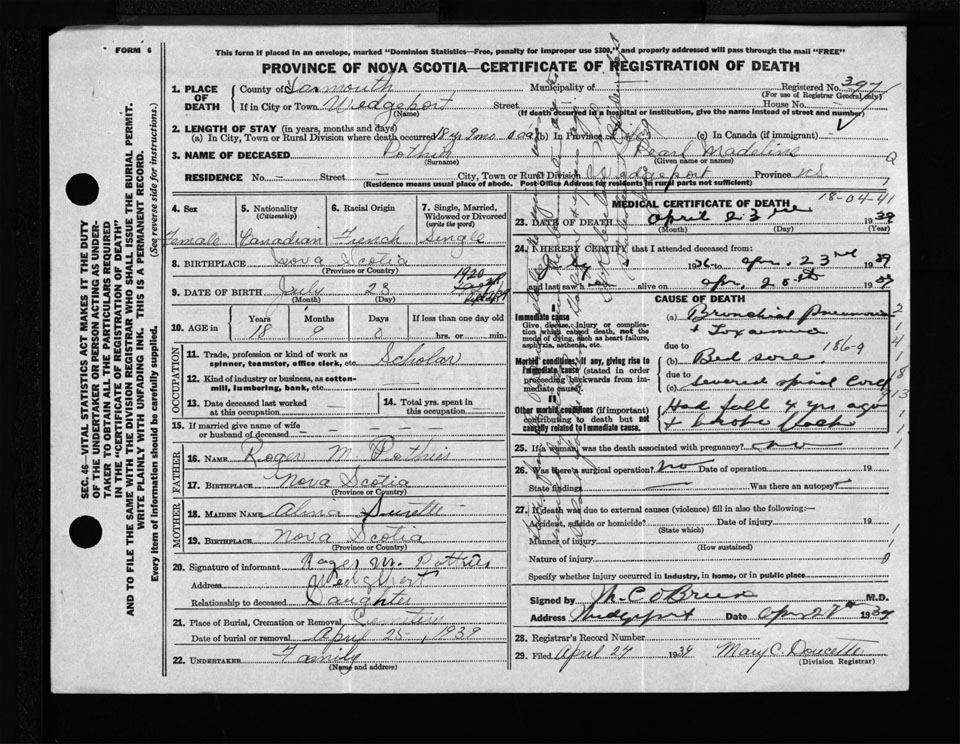 FORM 6
This form if placed in an envelope, marked "Dominion Statistics—Free, penalty for improper use $300," and properly addressed will pass through the mail "FREE"
PROVINCE OF NOVA SCOTIA—CERTIFICATE OF REGISTRATION OF DEATH
SEC. 46—VITAL STATISTICS ACT MAKES IT THE DUTY
OF THE UNDERTAKER OR PERSON ACTING AS UNDER-
TAKER TO OBTAIN ALL THE PARTICULARS REQUIRED
IN THE "CERTIFICATE OF REGISTRATION OF DEATH"
AND TO FILE THE SAME WITH THE DIVISION REGISTRAR WHO SHALL ISSUE THE BURIAL PERMIT.
WRITE PLAINLY WITH UNFADING INK. THIS IS A PERMANENT RECORD.
Every item of information should be carefully supplied. (See reverse side for instructions.)
1. PLACE OF DEATH
County of Yarmouth Municipality of Registered No. 397
(For use of Registrar General only)
If in City or Town Wedgeport Street House No.
(Name) (If death occurred in a hospital or institution, give the name instead of street and number)
2. LENGTH OF STAY (in years, months and days)
(a) In City, Town or Rural Division where death occurred 18 yr 9 mo 0 da (b) In Province (c) In Canada (if immigrant) -
3. NAME OF DECEASED Pothier Pearl Madeline
(Surname) (Given name or names)
RESIDENCE No. - Street - City, Town or Rural Division Wedgeport Province N.S.
(Residence means usual place of abode. Post Office Address for residents in rural parts not sufficient)
4. Sex Female
5. Nationality (Citizenship) Canadian
6. Racial Origin French
7. Single, Married, Widowed or Divorced (write the word) Single
8. BIRTHPLACE Nova Scotia
(Province or Country)
9. DATE OF BIRTH July 23 1920
(Month) (Day)
10. AGE in Years Months Days If less than one day old
18 9 0 hrs. or min.
OCCUPATION
11. Trade, profession or kind of work as spinner, teamster, office clerk, etc. Scholar
12. Kind of industry or business, as cotton-mill, lumbering, bank, etc.
13. Date deceased last worked at this occupation
14. Total yrs. spent in this occupation
15. If married give name of wife or husband of deceased
FATHER
16. NAME Roger M. Pothier
17. BIRTHPLACE Nova Scotia
(Province or Country)
MOTHER
18. MAIDEN NAME Alma Surette
19. BIRTHPLACE Nova Scotia
(Province or Country)
20. Signature of informant Roger M. Pothier
Address Wedgeport
Relationship to deceased Daughter
21. Place of Burial, Cremation or Removal Cemetery
Date of burial or removal April 25, 1939
22. UNDERTAKER Family
(Name and address)
MEDICAL CERTIFICATE OF DEATH
18-04-41
23. DATE OF DEATH April 23 1939
(Month) (Day) (Year)
24. I HEREBY CERTIFY that I attended deceased from:
1936 to Apr. 23rd 1939
and last saw h alive on Apr. 20th 1939
CAUSE OF DEATH
Immediate cause
Give disease, injury or complication which caused death, not the mode of dying, such as heart failure, asphyxia, asthenia, etc.
(a) Bronchial Pneumonia
+ Toxaemia
due to
Morbid conditions, if any, giving rise to Immediate cause (stated in order proceeding backwards from immediate cause).
186-9
(b) Bed sore
due to
(c) Severed spinal cord
II
Other morbid conditions (if important) contributing to death but not causally related to immediate cause.
Had fall 4 yrs ago
+ broke back
25. If a woman, was the death associated with pregnancy? no
26. Was there a surgical operation? no Date of operation 19
State findings Was there an autopsy?
27. If death was due to external causes (violence) fill in also the following:—
Accident, suicide or homicide? Date of injury 19
(State which)
Manner of injury
(How sustained)
Nature of injury
Specify whether injury occurred in industry, in home, or in public place
Signed by M. C. O'Brien M.D.
Address Wedgeport Date Apr 27th 1939
28. Registrar's Record Number
29. Filed April 27 1939 Mary C. Doucette
(Division Registrar)